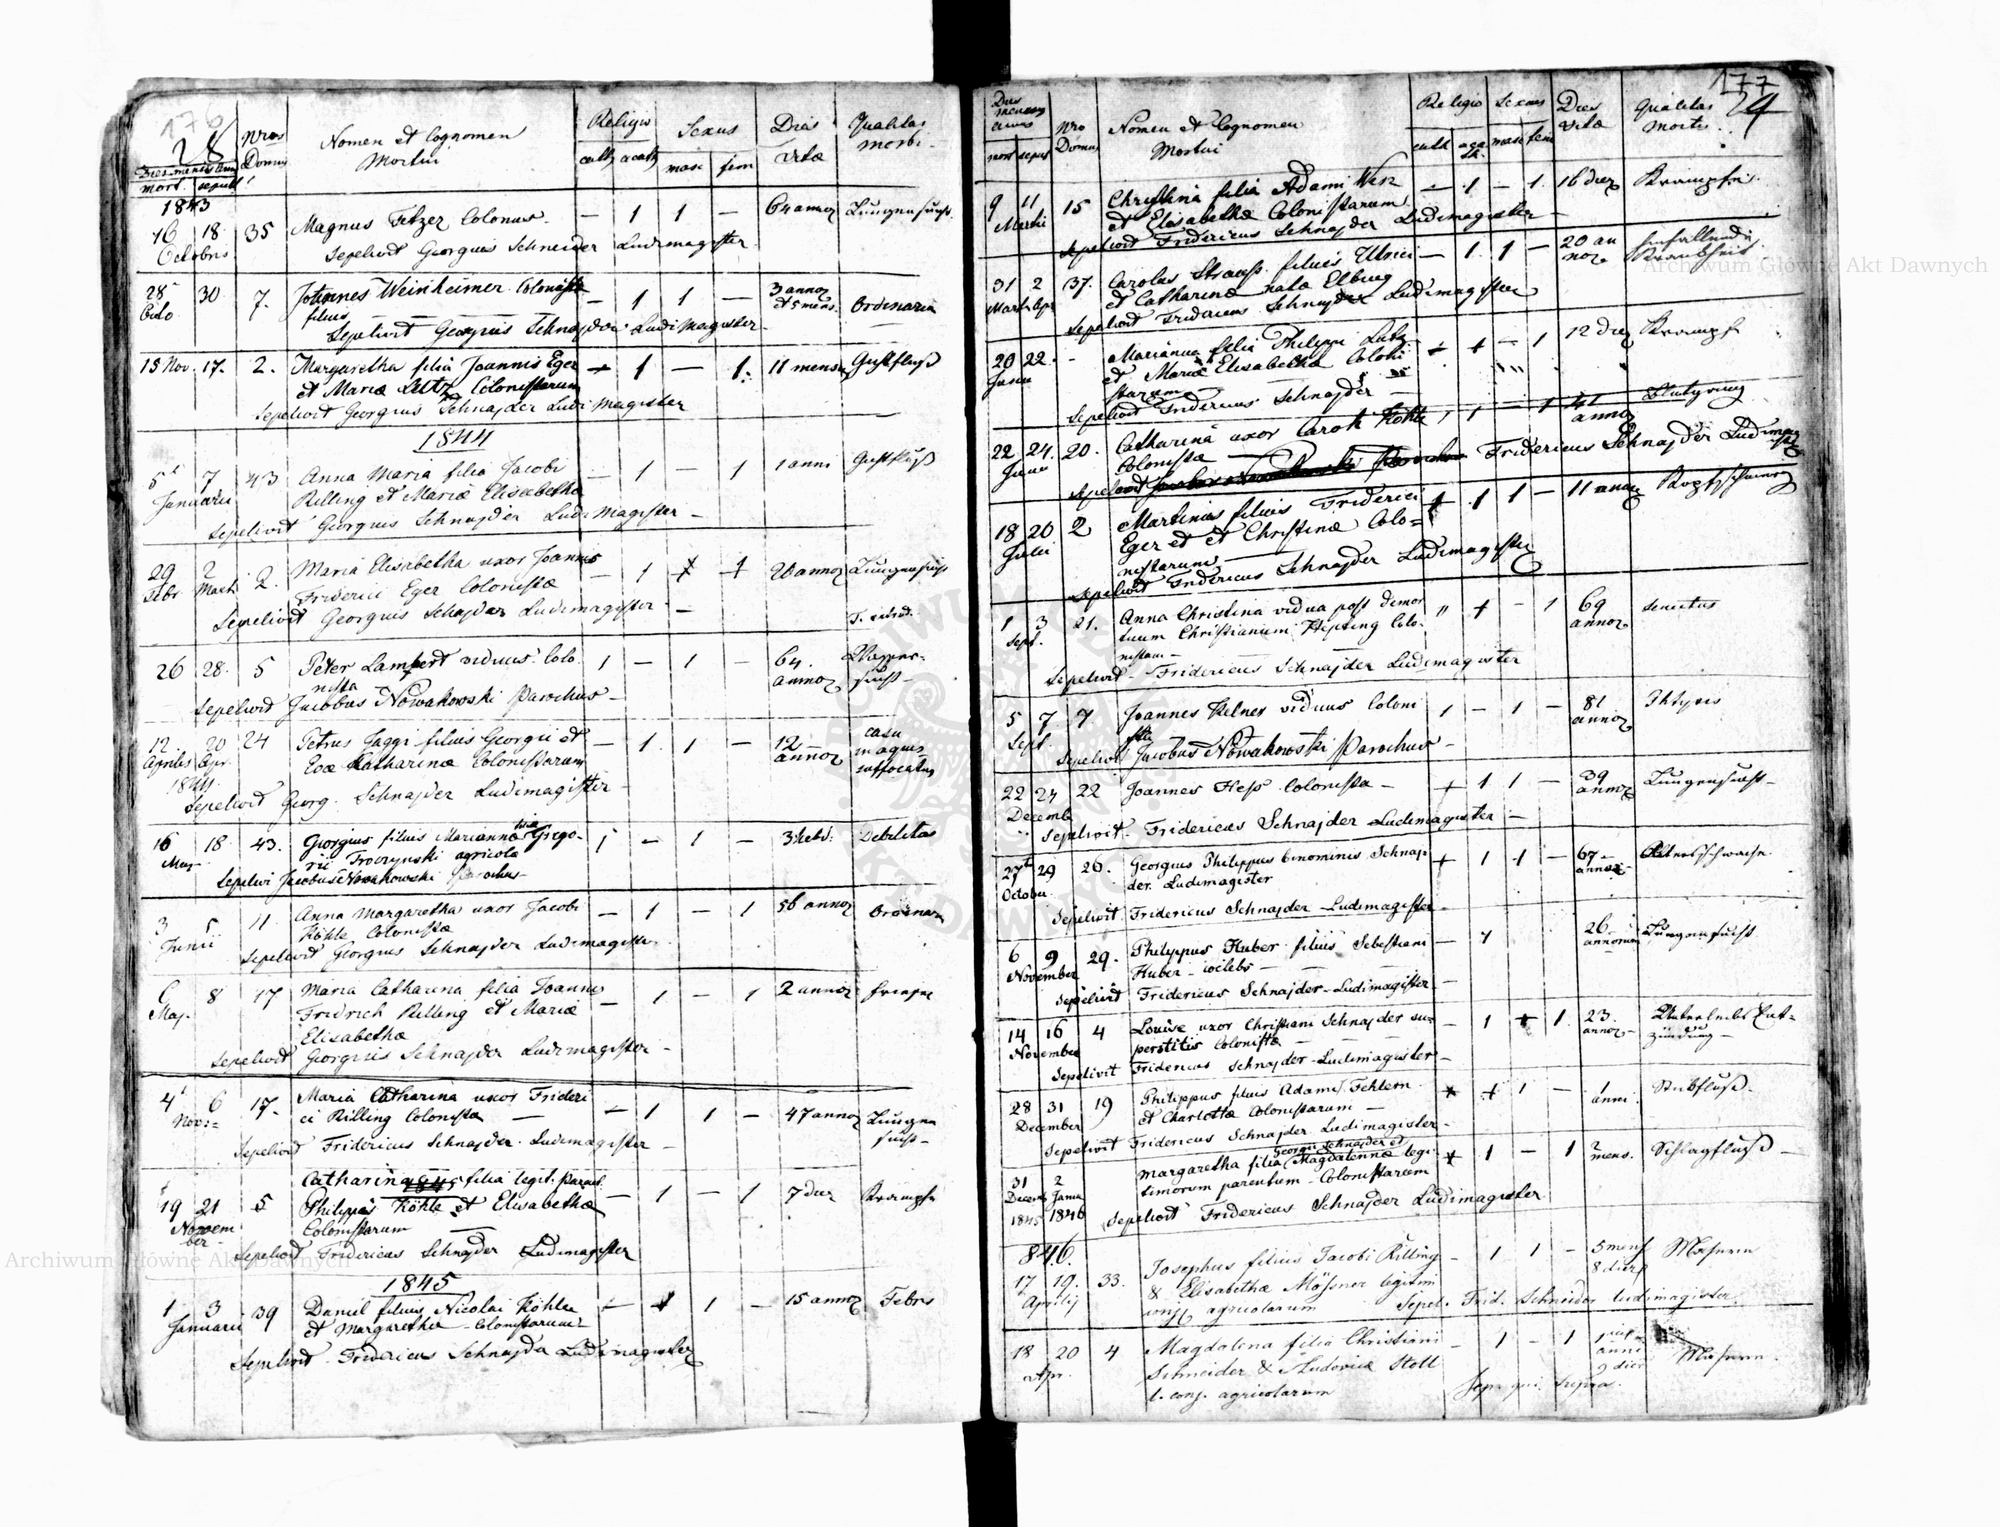 176
28
Dies mensis Ann
mort. sepult.
Nrus Domus
Nomen et Cognomen
Mortui
Religio
cath acath
Sexus
masc fem
Dies
vitæ
Qualitas
morbi.
1843
16 18 35 Magnus Fetzer Colonus - — 1 1 — 64 annoz Lungensucht
Octobris Sepelivit Georgius Schneider Ludimagister
28 30 7. Johannes Weinheimer Colonistæ — 1 1 — 3 annoz et 5 mens. Ordinaria
filius
Sepelivit Georgius Schnajder Ludimagister
15 Nov. 17. 2. Margaretha filia Joannis Eger 1 — 1. 11 mens
et Mariæ Lutz Colonistarum
Sepelivit Georgius Schnajder Ludimagister
1844
5 7 43 Anna Maria filia Jacobi — 1 — 1 1 anni
Januarii Rilling et Mariæ Elisabetha
Sepelivit Georgius Schnajder Ludimagister -
29 2 2. Maria Elisabetha uxor Joannis — 1 1 20 annoz Lungensucht
Febr. Marti Friderici Eger Colonistæ
Sepelivit Georgius Schnajder Ludimagister -
26 28. 5 Peter Lampert viduus Colo- 1 — 1 — 64. annoz Wassersucht
nista
Sepelivit Jacobus Nowakowski Parochus -
12. 20 24 Petrus Jaggi filius Georgii et — 1. 1 — 12 annoz casu
Aprilis Apr. Evæ Katharinæ Colonistarum suffocatus
1844
Sepelivit Georg. Schnajder Ludimagister -
16 18 43. Georgius filius Mariannæ Grego- 1 — 1 — 3 hebd. Debilitas
May rii Troczynski agricola
Sepelivi Jacobus Nowakowski Parochus
3 5. 11. Anna Margaretha uxor Jacobi — 1 — 1 56 annoz Ordinar
Junii Köhle Colonistæ
Sepelivit Georgius Schnajder Ludimagister
6 8 17 Maria Catharina filia Joannis — 1 — 1 2 annoz
Maj. Fridrich Rilling et Mariæ
Elisabethæ
Sepelivit Georgius Schnajder Ludimagister -
4 6 17. Maria Catharina uxor Frideri — 1 1 — 47 annoz Lungen
Nov. ci Rilling Colonistæ — sucht -
Sepelivit Fridericus Schnajder Ludimagister -
Catharina filia legit. parent.
19 21 5 Philippi Köhle et Elisabethæ — 1 — 1 7 dier Krampfe
Novem
ber Colonistarum —
Sepelivit Fridericus Schnajder Ludimagister
1845
1 3 39 Daniel filius Nicolai Köhle 1 1 — 15 annoz Febris
Januarii et Margaretha - Colonistarum
Sepelivit Fridericus Schnajder Ludimagister
177
29
Dies mensis annus
mort sepult
Nro Domus
Nomen et Cognomen
Mortui
Religio
cath aca th.
Sexus
masc fem
Dies
vitæ
Qualitas
Mortis
9 11 15 Christina filia Adami — 1 — 1. 16 dier Krampfe.
Martii et Elisabethæ Colonistarum
Sepelivit Fridericus Schnajder Ludimagister
31 2 37. Carolus Strauss. filius Ulrici — 1. 1 — 20 an
Marti Apr et Catharinæ nata Elbing noz
Sepelivit Fridericus Schnajder Ludimagister
20 22. - Marianna filia Philippi Lutz — 1 12 dier Krampf
Juni et Mariæ Elisabetha Coloni
starum
Sepelivit Fridericus Schnajder —
22 24. 20. Catharina uxor Caroli Köhle 1 — 1 41 annoz
Juni Colonistæ
Sepelivit Fridericus Schnajder Ludimagister
18 20 2 Martinus filius Friderici 1 1 — 11 annoz
Julii Eger et et Christinæ Colo=
nistarum
Sepelivit Fridericus Schnajder Ludimagister
1 3 21. Anna Christina vidua post demor " — 1 69 annoz senectus
Sept. tuum Christianum Hepting Colo-
nistam -
Sepelivit - Fridericus Schnajder Ludimagister
5 7 7 Joannes Kelner viduus Coloni 1 — 1 — 81 annoz Phtysis
Sept. sta
Sepelivit Jacobus Nowakowski Parochus -
22 24 22 Joannes Hess Colonista - 1 1 — 39 annoz Lungensucht -
Decemb
Sepelivit. Fridericus Schnajder Ludimagister -
27 29 26. Georgius Philippus binominis Schnaj 1 1 — 67 annoz Altersschwäche
Octobr. der Ludimagister
Sepelivit Fridericus Schnajder - Ludimagister
6 9 29. Philippus Huber filius Sebestiani — 1 26 annorum Lungensucht
November Huber - cœlebs -
Sepelivit Fridericus Schnajder - Ludimagister -
14 16 4 Louise uxor Christiani Schnajder su= — 1 1. 23. annoz - Unterleibs Ent=
November perstitis Colonistæ - zündung -
Sepelivit Fridericus Schnajder - Ludimagister -
28 31 19 Philippus filius Adami Fehlern 1 — 1 anni Stickfluss.
December et Charlottæ Colonistarum -
Sepelivit Fridericus Schnajder Ludimagister -
Georgii Schnajder et
31 2 Margaretha filia Magdalennæ legi- 1 — 1 2 mens. Schlagfluss -
Decemb Janua timorum parentum - Colonistarum
1845 1846 Sepelivit Fridericus Schnajder Ludimagister
846.
17 19. 33. Josephus filius Jacobi Rilling — 1 1 — 5 mens 8 dier Masern
Aprilij & Elisabethæ Mössner legitim
conj. agricolarum Sepel. Frid. Schneider ludimagister.
18 20 4 Magdalena filia Christiani — 1 — 1 1 anni 9 dier Masern.
Apr. Schneider & Ludovicæ Stoll
l. conj. agricolarum Sepe. qui supra.
Archiwum Główne Akt Dawnych
Archiwum Główne Akt Dawnych